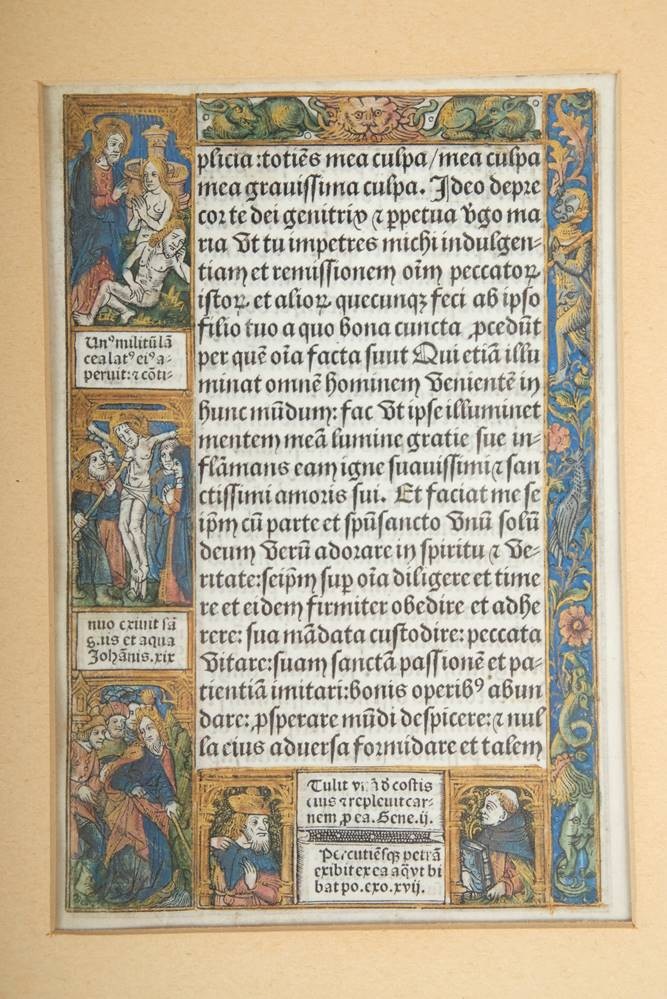 plicia : totiẽs mea culpa / mea culpa
mea grauissima culpa. Ideo depre
cor te dei genitrix ⁊ ꝑpetua ṽgo ma
ria Vt tu impetres michi indulgen-
tiam et remissionem oĩm peccatoꝝ
istoꝝ et alioꝝ quecunqꝫ feci ab ipso
filio tuo a quo bona cuncta ꝓcedũt
per quẽ oĩa facta sunt Qui etiã illu
minat omnẽ hominem Venientẽ in
hunc mũdum: fac Vt ipse illuminet
mentem meã lumine gratie sue in-
flãmans eam igne suauissimi ⁊ san
ctissimi amoris sui. Et faciat me se
ip̃m cũ parte et sp̃usancto Vnũ solũ
deum Verũ adorare in spiritu ⁊ Ve-
ritate: seip̃m sup̱ oĩa diligere et time
re et eidem firmiter obedire et adhe
rere: sua mãdata custodire: peccata
Vitare: suam sanctã passionẽ et pa-
tientiã imitari: bonis operibꝰ abun
dare: ꝓsperare mũdi despicere: ⁊ nul
la eius aduersa formidare et talem
Unꝰ militũ lã
cea latꝰ eiꝰ a-
peruit: ⁊ cõti-
nuo exiuit sã
et aqua
Johãnis. xix
Tulit de costis
eius ⁊ repleuit car-
nem ꝓ ea. Gene. ij.
Percutiẽsqꝫ petrã
exibit ex ea aq̃ vt bi
bat po. exo. xvij.